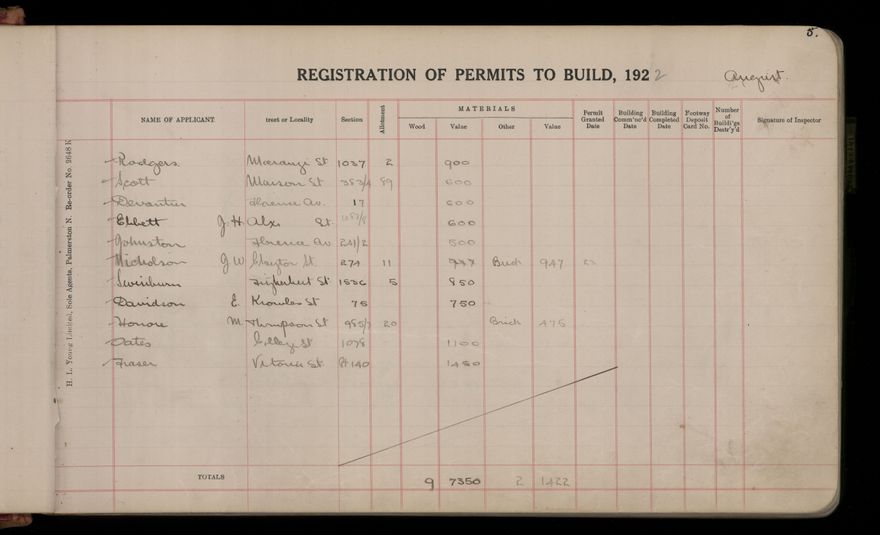 5.
REGISTRATION OF PERMITS TO BUILD, 1922 August.
MATERIALS
NAME OF APPLICANT treet or Locality Section Allotment Wood Value Other Value Permit Granted Date Building Comm'nc'd Date Building Completed Date Footway Deposit Card No. Number of Buildi'gs Destr'y'd Signature of Inspector
Rodgers. St 1037 2 900
Scott St 89 600
Devantier Florence Av. 17 600
Ebbett J. H. Alx. St. 600
Johnston Florence Av 241/2 500
Nicholson J W Clayton St. 274 11 Brick 947
Swinburn Fitzherbert St 1536 5 850
Davidson E. Knowles St 76 750
Honore M Thompson St 985/7 20 Brick 475
Oates College St 1078 1100
Fraser Victoria St. Pt 140 1450
TOTALS 9 7350 2 1422
H. L. Young Limited, Sole Agents, Palmerston N. Re-order No. 2648 K